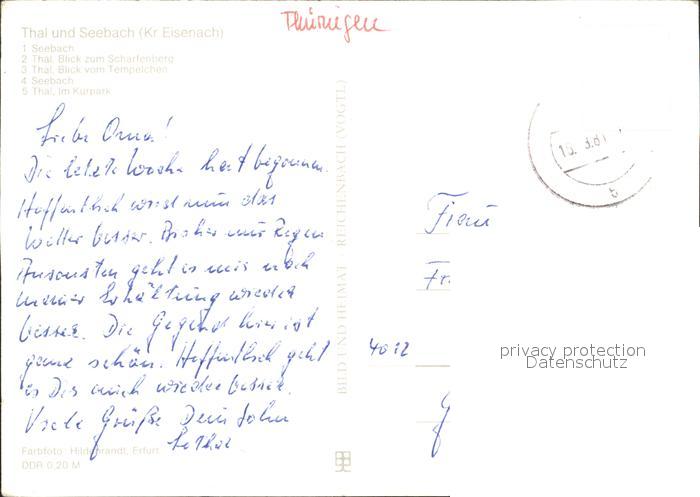 Thüringen
Thal und Seebach (Kr Eisenach)
1 Seebach
2 Thal, Blick zum Scharfenberg
3 Thal, Blick vom Tempelchen
4 Seebach
5 Thal, Im Kurpark
Liebe Oma!
Die letzte Woche hat begonnen.
Hoffentlich wird nun das
Wetter besser. Bisher nur Regen
Ansonsten geht es mir nach
meiner Erkältung wieder
besser. Die Gegend hier ist
ganz schön. Hoffentlich geht
es Dir auch wieder besser.
Viele Grüße Dein Sohn
Lothar
Farbfoto: Hildebrandt, Erfurt
DDR 0,20 M
BILD UND HEIMAT REICHENBACH (VOGTL)
15. 3.81
Frau
Fr.
4012
privacy protection
Datenschutz